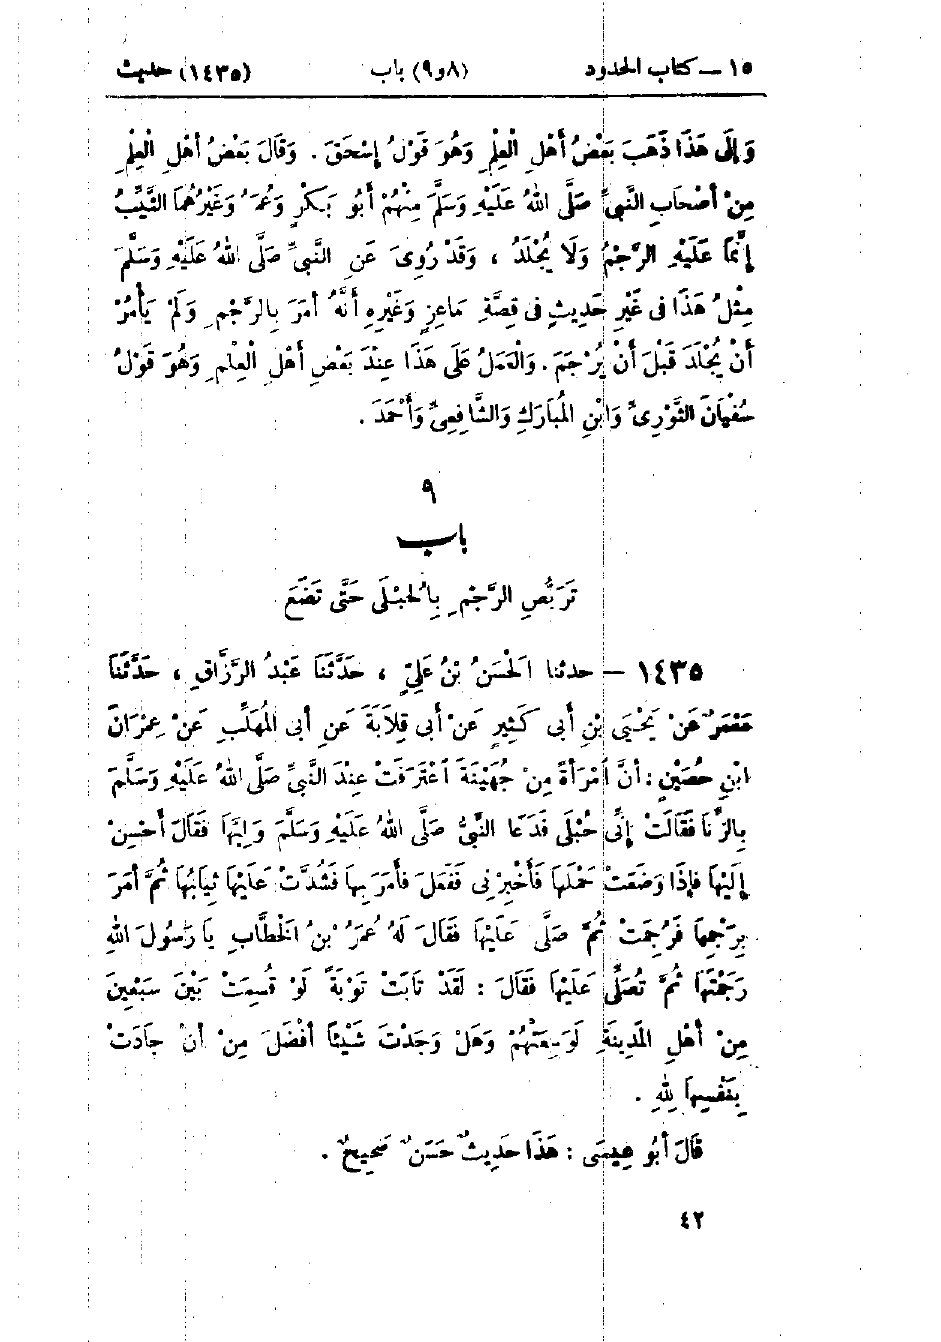 ١٥ – كتاب الحدود (٨و٩) باب (١٤٣٥) حديث
وَإِلَى هَذَا ذَهَبَ بَعْضُ أَهْلِ الْعِلْمِ وَهُوَ قَوْلُ إِسْحَقَ . وَقَالَ بَعْضُ أَهْلِ الْعِلْمِ
مِنْ أَصْحَابِ النَّبِيِّ صَلَّى اللهُ عَلَيْهِ وَسَلَّمَ مِنْهُمْ أَبُو بَكْرٍ وَعُمَرُ وَغَيْرُهُمَا الثَّيِّبُ
إِنَّمَا عَلَيْهِ الرَّجْمُ وَلَا يُجْلَدُ ، وَقَدْ رُوِىَ عَنِ النَّبِيِّ صَلَّى اللهُ عَلَيْهِ وَسَلَّمَ
مِثْلُ هَذَا فِى غَيْرِ حَدِيثٍ فِى قِصَّةِ مَاعِزٍ وَغَيْرِهِ أَنَّهُ أَمَرَ بِالرَّجْمِ وَلَمْ يَأْمُرْ
أَنْ يُجْلَدَ قَبْلَ أَنْ يُرْجَمَ . وَالْعَمَلُ عَلَى هَذَا عِنْدَ بَعْضِ أَهْلِ الْعِلْمِ وَهُوَ قَوْلُ
سُفْيَانَ الثَّوْرِىِّ وَابْنِ الْمُبَارَكِ وَالشَّافِعِىِّ وَأَحْمَدَ .
٩
باب
تَرَبُّصِ الرَّجْمِ بِالْحُبْلَى حَتَّى تَضَعَ
١٤٣٥ – حدثنا الْحَسَنُ بْنُ عَلِىٍّ ، حَدَّثَنَا عَبْدُ الرَّزَّاقِ ، حَدَّثَنَا
مَعْمَرٌ عَنْ يَحْيَى بْنِ أَبِى كَثِيرٍ عَنْ أَبِى قِلَابَةَ عَنْ أَبِى الْمُهَلَّبِ عَنْ عِمْرَانَ
ابْنِ حُصَيْنٍ : أَنَّ امْرَأَةً مِنْ جُهَيْنَةَ اعْتَرَفَتْ عِنْدَ النَّبِيِّ صَلَّى اللهُ عَلَيْهِ وَسَلَّمَ
بِالزِّنَا فَقَالَتْ إِنِّى حُبْلَى فَدَعَا النَّبِيُّ صَلَّى اللهُ عَلَيْهِ وَسَلَّمَ وَلِيَّهَا فَقَالَ أَحْسِنْ
إِلَيْهَا فَإِذَا وَضَعَتْ حَمْلَهَا فَأَخْبِرْنِى فَفَعَلَ فَأَمَرَ بِهَا فَشُدَّتْ عَلَيْهَا ثِيَابُهَا ثُمَّ أَمَرَ
بِرَجْمِهَا فَرُجِمَتْ ثُمَّ صَلَّى عَلَيْهَا فَقَالَ لَهُ عُمَرُ بْنُ الْخَطَّابِ يَا رَسُولَ اللهِ
رَجَمْتَهَا ثُمَّ تُصَلِّى عَلَيْهَا فَقَالَ : لَقَدْ تَابَتْ تَوْبَةً لَوْ قُسِمَتْ بَيْنَ سَبْعِينَ
مِنْ أَهْلِ الْمَدِينَةِ لَوَسِعَتْهُمْ وَهَلْ وَجَدْتَ شَيْئًا أَفْضَلَ مِنْ أَنْ جَادَتْ
بِنَفْسِهَا لِلهِ .
قَالَ أَبُو عِيسَى : هَذَا حَدِيثٌ حَسَنٌ صَحِيحٌ .
٤٢